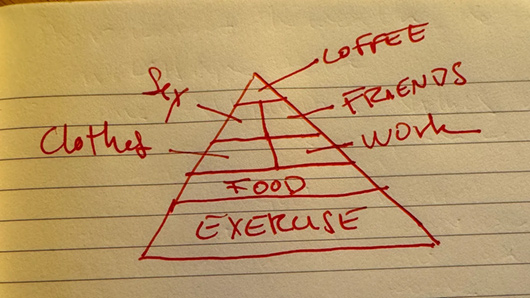 COFFEE
Sex
FRIENDS
Clothes
WORK
FOOD
EXERCISE